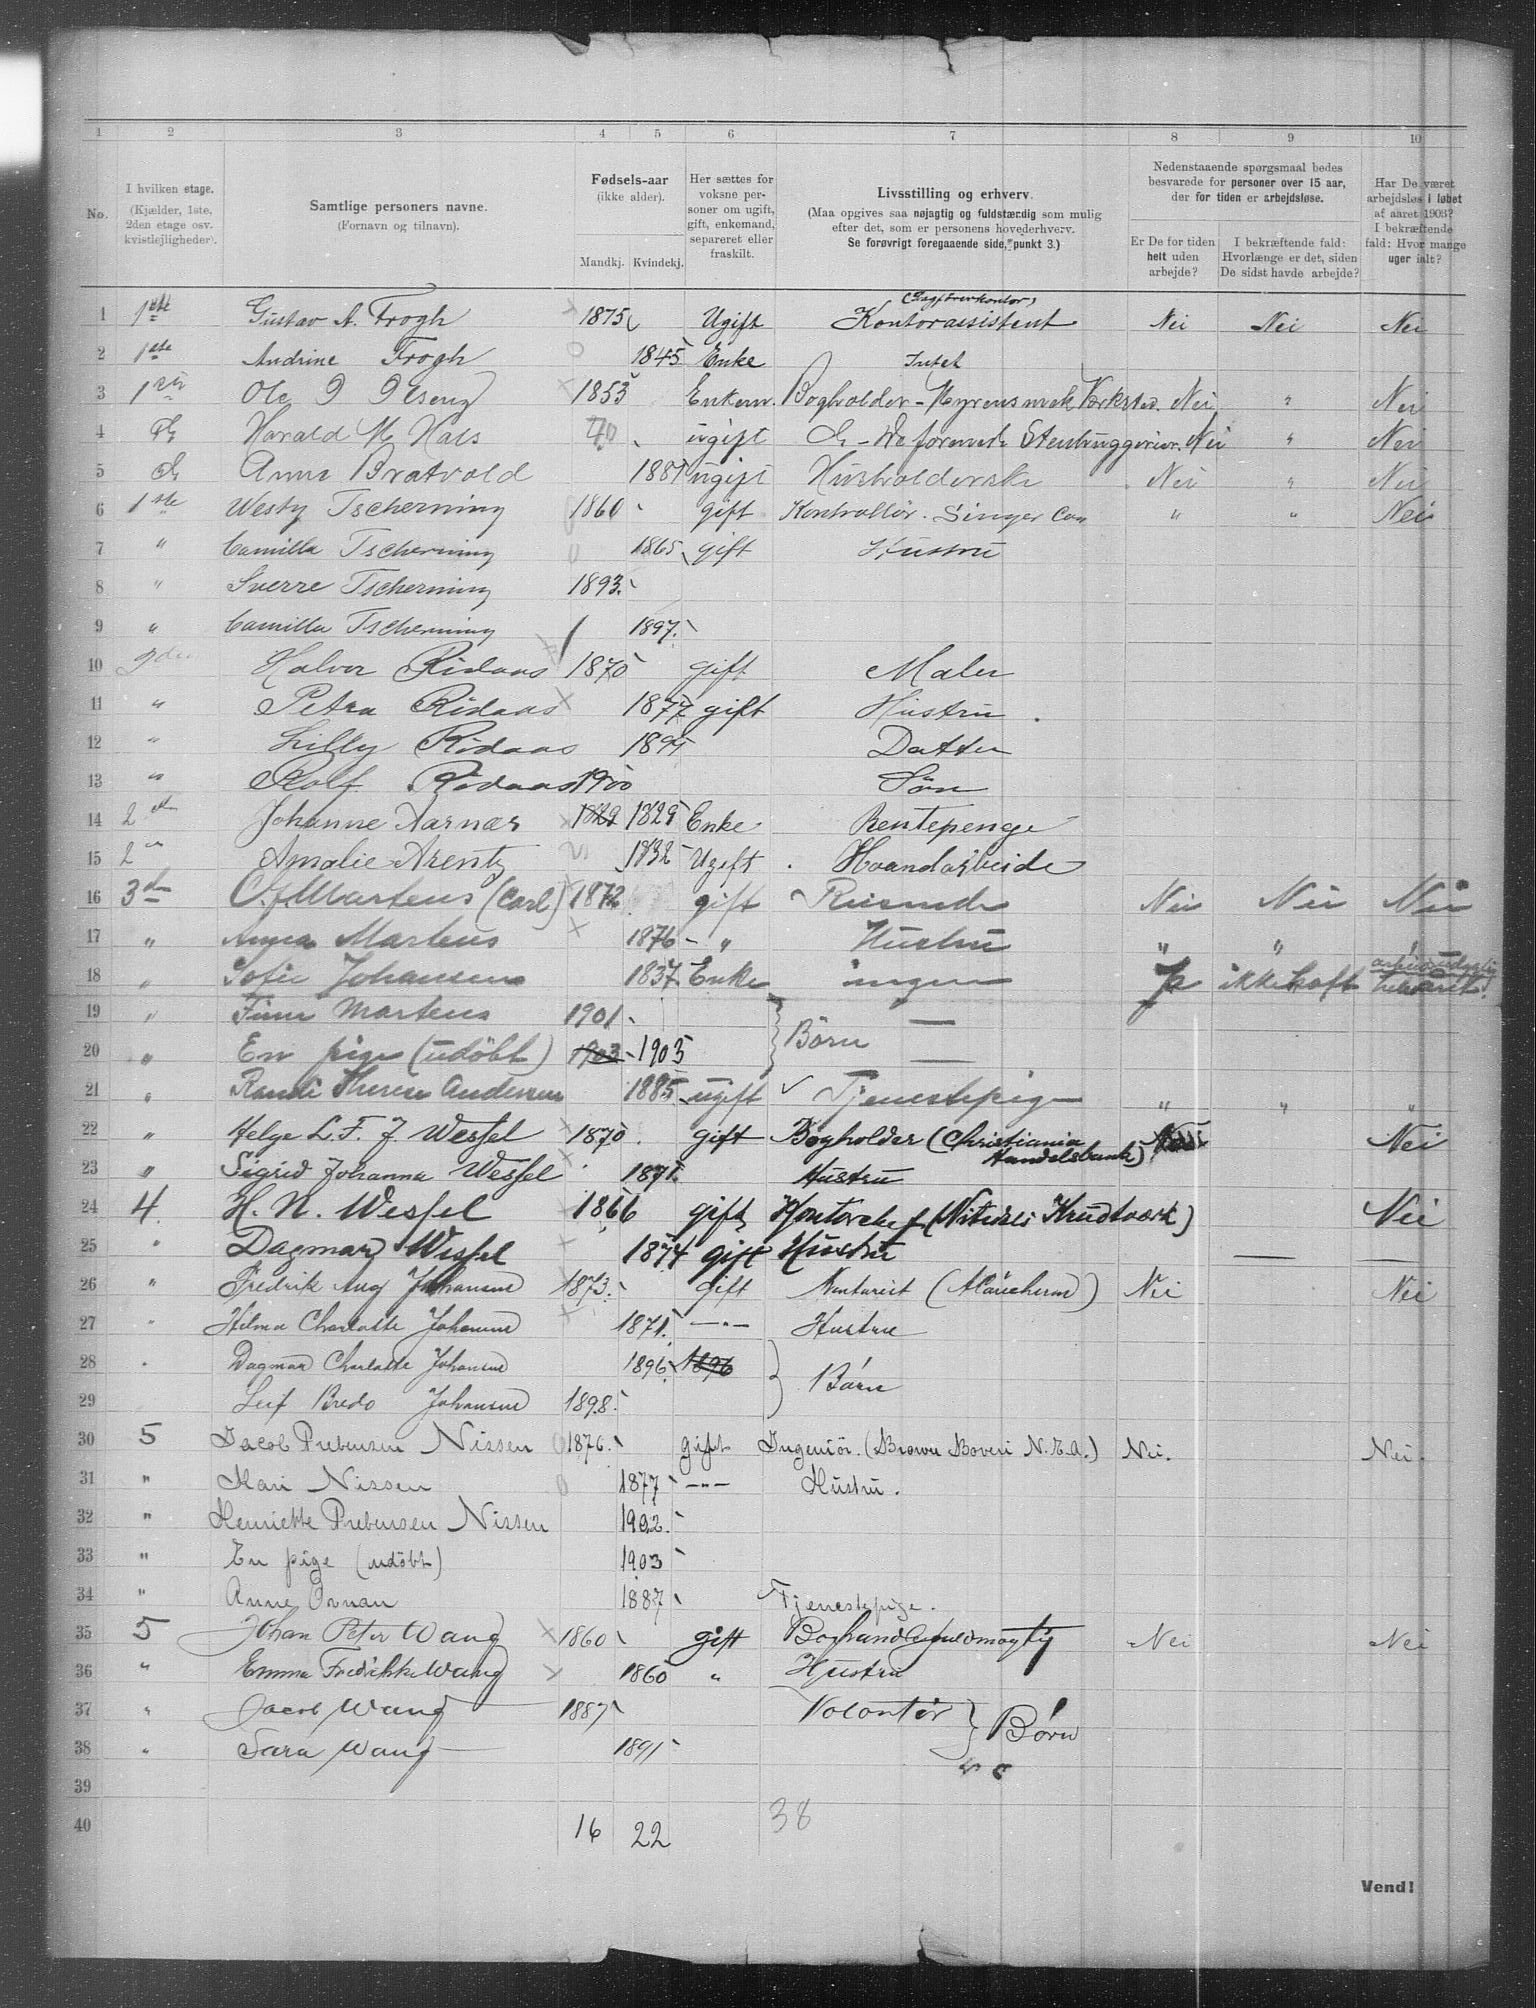 1 2 3 4 5 6 7 8 9 10
No. I hvilken etage. (Kjælder, 1ste, 2den etage osv. kvistlejligheder). Samtlige personers navne. (Fornavn og tilnavn). Fødsels-aar (ikke alder). Mandkj. Kvindekj. Her sættes for voksne personer om ugift, gift, enkemand, separeret eller fraskilt. Livsstilling og erhverv. (Maa opgives saa nøjagtig og fuldstændig som mulig efter det, som er personens hovederhverv. Se forøvrigt foregaaende side, punkt 3.) Nedenstaaende spørgsmaal bedes besvarede for personer over 15 aar, der for tiden er arbejdsløse. Er De for tiden helt uden arbejde? I bekræftende fald: Hvorlænge er det, siden De sidst havde arbejde? Har De været arbejdsløs i løbet af aaret 1903? I bekræftende fald: Hvor mange uger ialt?
1 1ste Gustav A. Frogh 1875 Ugift Kontorassistent Nei Nei Nei
2 1ste Andrine Frogh 1845 Enke Intet
3 1ste Ole 1853 Enkem. Bogholder - Myrens mek. Værksted. Nei " Nei
4 Harald M Hals ugift Stenhuggerier. Nei " Nei
5 Anna Bratvold 1881 ugift Husholderske Nei " Nei
6 1ste Westy Tscherning 1860 gift Kontrollør. Singer Co " " Nei
7 " Camilla Tscherning 1865 gift Hustru
8 " Sverre Tscherning 1893
9 " Camilla Tscherning 1897
10 2den Halvor Rødaas 1870 gift Maler
11 " Petra Rødaas 1877 gift Hustru
12 " Lilly Rødaas Datter
13 " Rolf Rødaas 1900 Søn
14 2 Johanne Aarnæs 1829 1829 Enke Rentepenge
15 2 Amalie Arentz 1832 Ugift Haandarbeide
16 3de Martens (Carl) 1872 gift Reisende Nei Nei Nei
17 " Anna Martens 1876 " Hustru " " "
18 " Sofie Johansen 1837 Enke ingen Ja ikke haft
19 " Martens 1901 Børn
20 " En pige (udöbt) 1903 1903
21 " Randi Therese Andersen 1885 ugift Tjenestepige " " "
22 " Helge L. F. J. Wessel 1870 gift Bogholder (Christiania Handelsbank) Nei Nei
23 " Sigrid Johanna Wessel 1871 Hustru
24 4 H. N. Wessel 1866 gift Kontorchef (Nitedals Krudtværk) Nei
25 " Dagmar Wessel 1874 gift Hustru
26 " Fredrik Aug Johansen 1873 gift Nei Nei
27 " Hilma Charlotte Johansen 1871 —"— Hustru
28 " Dagmar Charlotte Johansen 1896 1896 Børn
29 Leif Bredo Johansen 1898
30 5 Jacob Prebensen Nissen 1876 gift Ingeniör. (Brown Boveri N. E. A.) Nei. Nei.
31 " Kari Nissen 1877 —"— Hustru.
32 " Henriette Prebensen Nissen 1902
33 " En pige (udöbt) 1903
34 " Anne 1887 Tjenestepige.
35 5 Johan Peter Wang 1860 gift Boghandlerfuldmægtig Nei Nei
36 " Emma Fredrikke Wang 1860 " Hustru
37 " Jacob Wang 1887 Volontør Børn
38 " Sara Wang 1891
39
40 16 22 38
Vend!